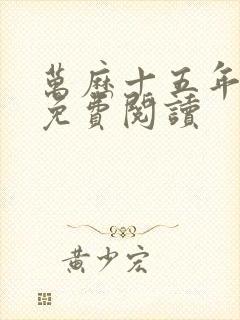 萬厤十五年
免費閱讀
黃少宏